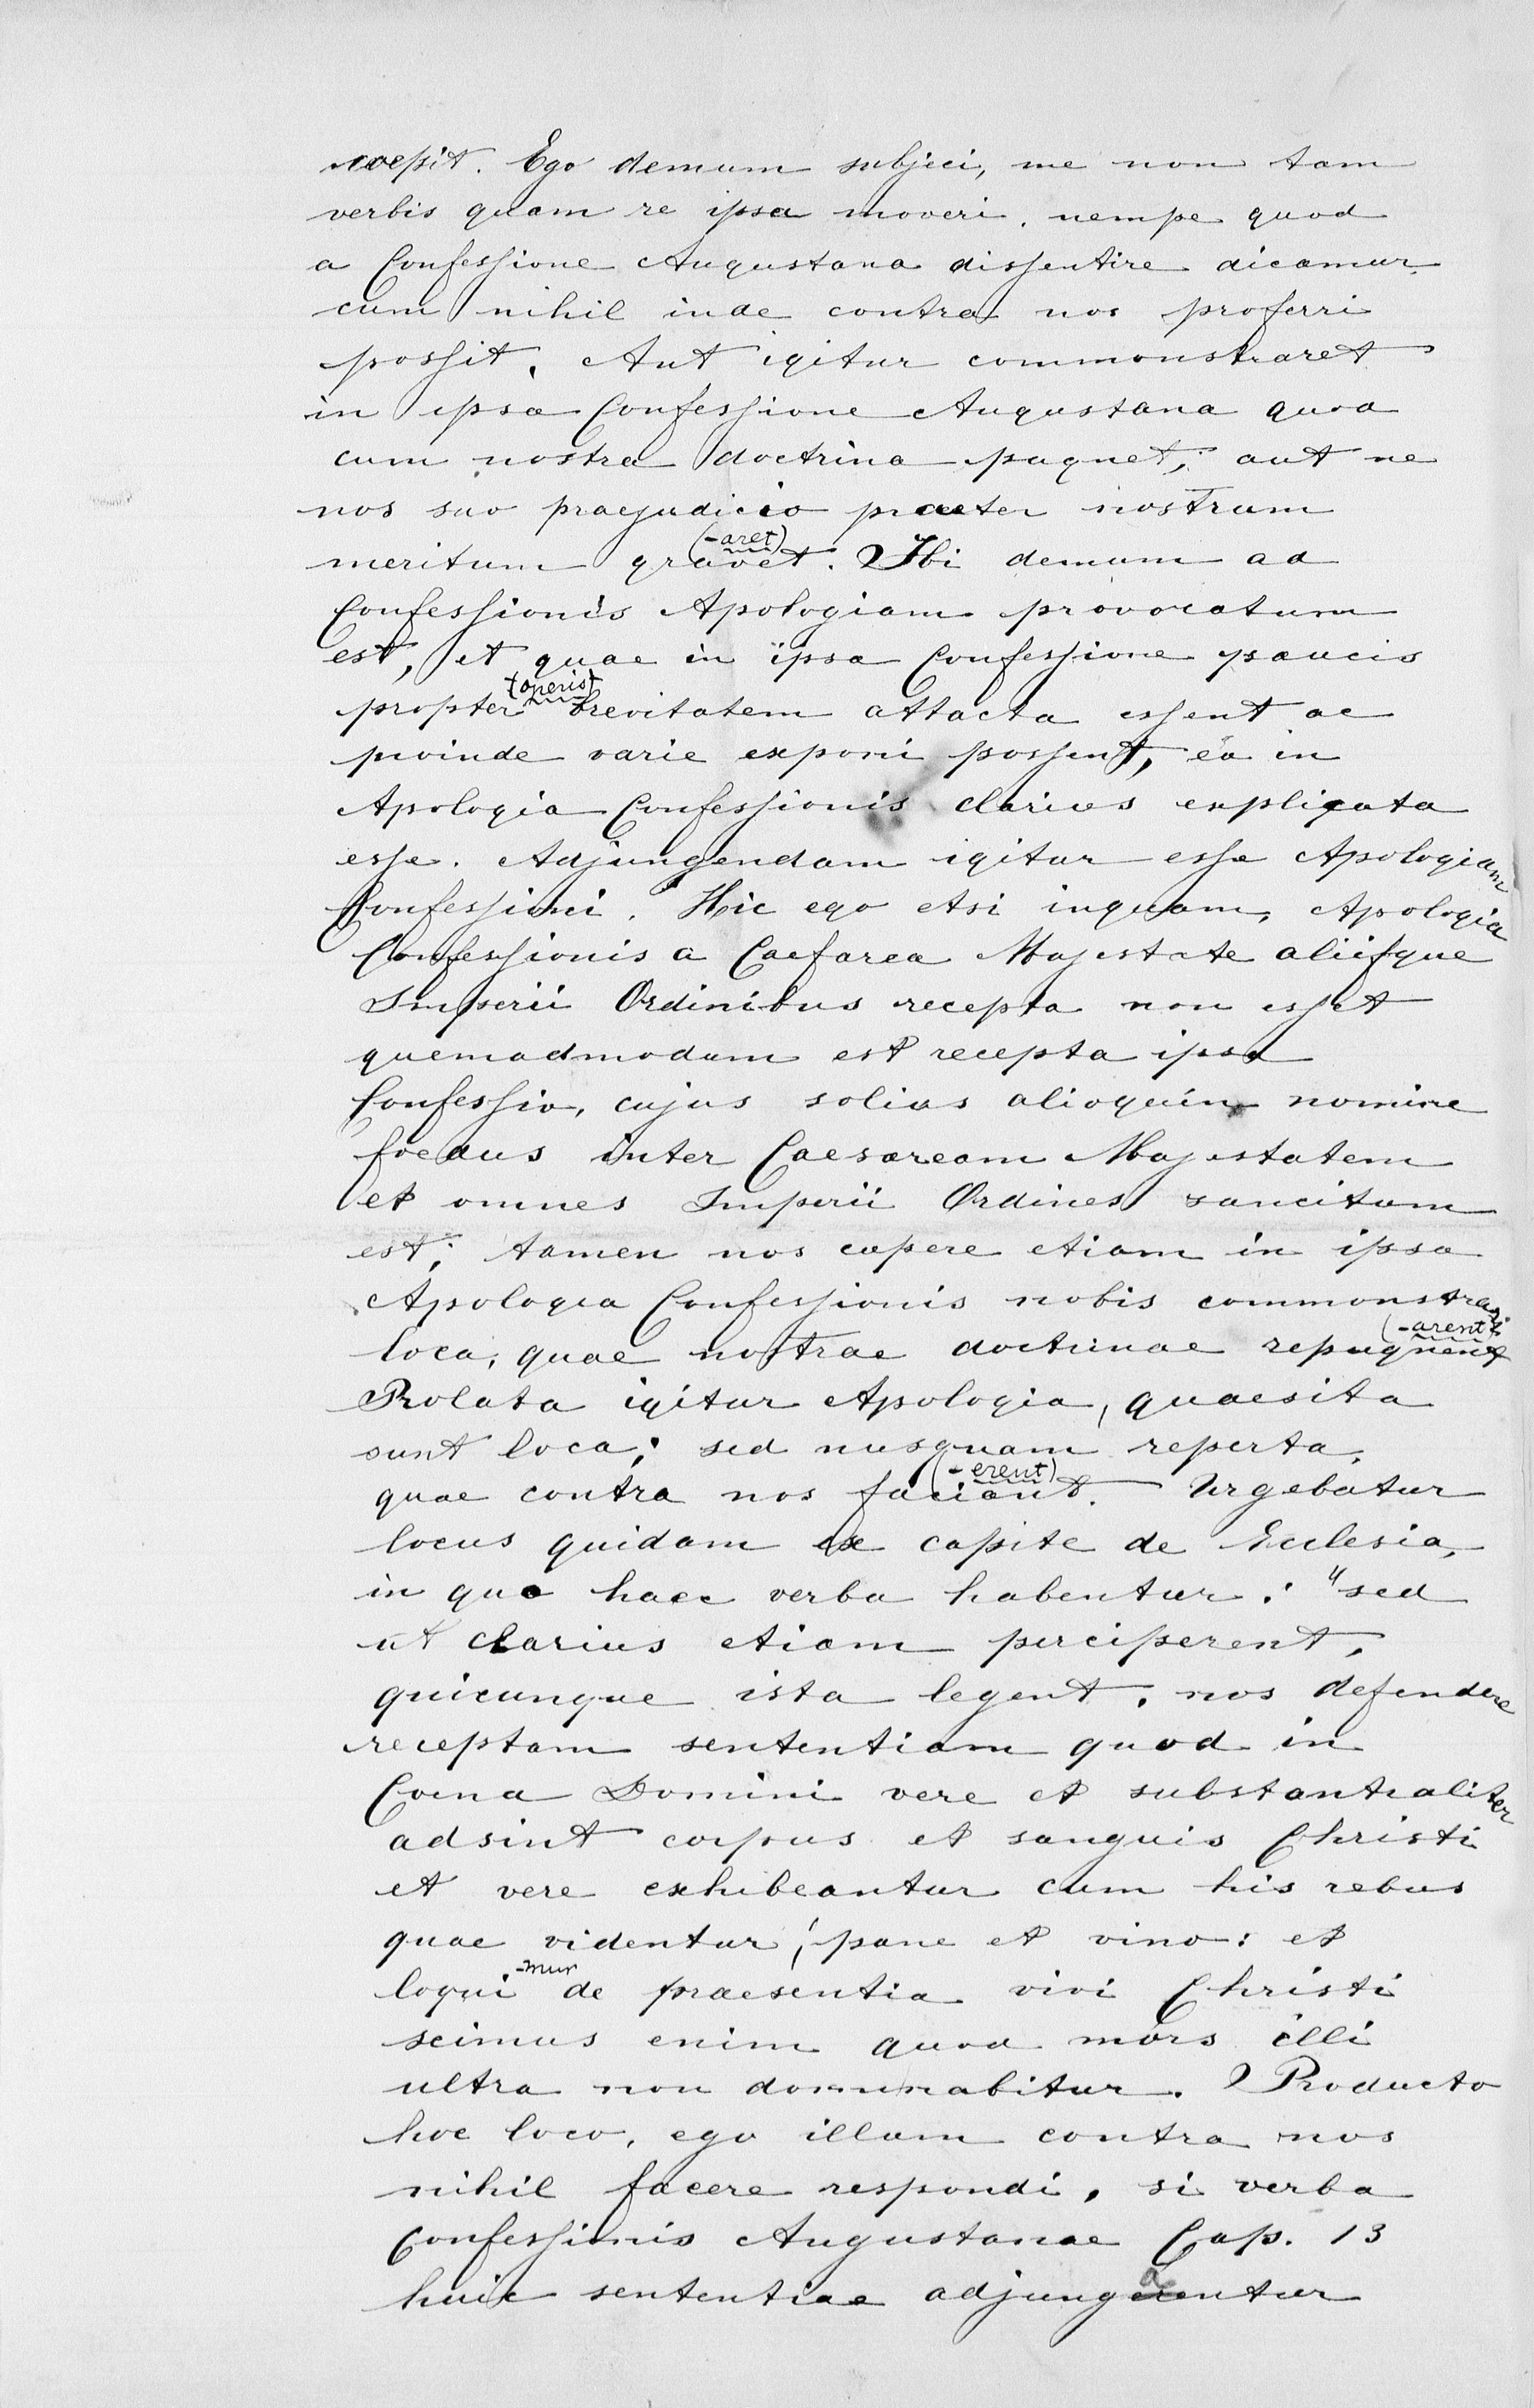 coepit. Ego demum subjeci, me non tam
verbis quam re ipsa moveri, nempe quod
a Confessione Augustana dissentire dicamur
cum nihil inde contra nos proferri
possit. Aut igitur commonstraret
in ipsa Confessione Augustana quod
cum nostra doctrina pugnet; aut ne
nos suo praejudicio praeter nostrum
meritum gravet (-aret). Ibi demum ad
Confessionis Apologiam provocatum
est, et quae in ipsa Confessione paucis
propter (operis) brevitatem attacta essent ac
proinde varie exponi possent, ea in
Apologia Confessionis clarius explicata
esse. Adjungendam igitur esse Apologiam
Confessioni. Hic ego etsi inquam, Apologia
Confessionis a Caesarea Majestate aliisque
Imperii Ordinibus recepta non esset
quemadmodum est recepta ipsa
Confessio, cujus solius alioquin nomine
foedus inter Caesaream Majestatem
et omnes Imperii Ordines sancitum
est; tamen nos cupere etiam in ipsa
Apologia Confessionis nobis commonstrari
loca, quae nostrae doctrinae repugnent (-arent).
Prolata igitur Apologia, quaesita
sunt loca; sed nusquam reperta,
quae contra nos faciant (-erent). Urgebatur
locus quidam ex capite de Ecclesia,
in quo haec verba habentur: "sed
ut clarius etiam perciperent,
quicunque ista legent, nos defendere
receptam sententiam quod in
Coena Domini vere et substantialiter
adsint corpus et sanguis Christi
et vere exhibeantur cum his rebus
quae videntur, pane et vino: et
loqui -mur de praesentia vivi Christi
scimus enim quod mors illi
ultra non dominabitur. Producto
hoc loco, ego illum contra nos
nihil facere respondi, si verba
Confessionis Augustanae Cap. 13
huic sententiae adjungantur